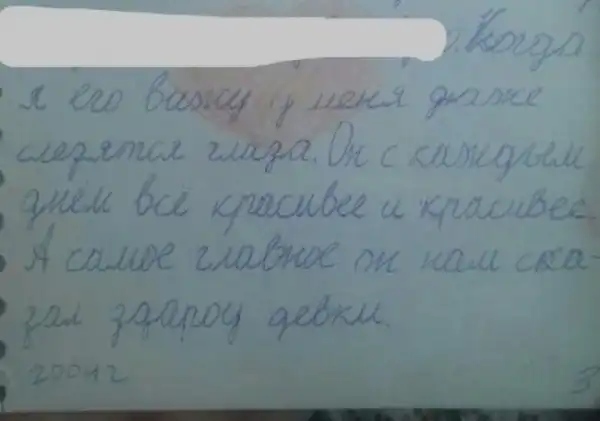 . Когда
я его важу у меня даже
слезятся глаза. Он с каждым
днём всё красивее и красивее.
А самое главное он нам ска-
зал здароу девки.
2004г
3